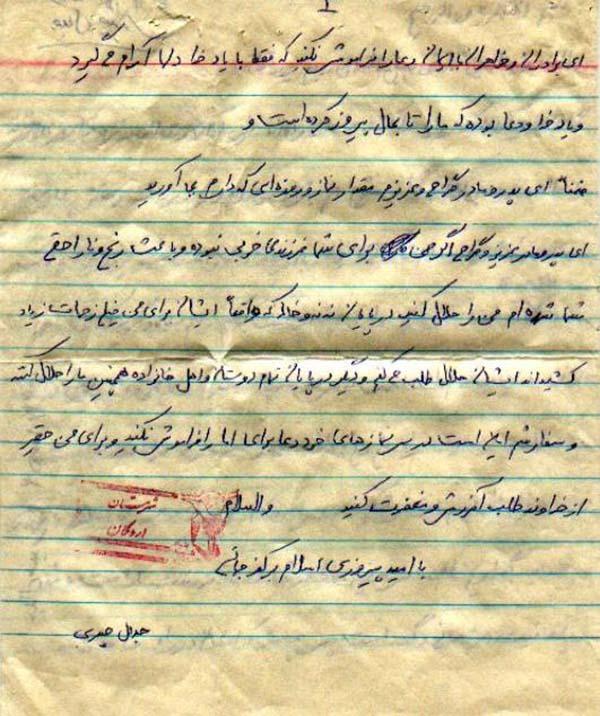 ای برادران و خواهران با ایمان دعا را فراموش نکنید که فقط با یاد خدا دلها آرام می گیرد
و یاد خدا و دعا بوده که ما را تا بحال پیروز کرده است و
ضمناً ای پدر و مادر گرامی و عزیزم مقدار نماز و روزه ای که دارم بجا آورید
ای پدر و مادر عزیز و گرامی اگر من برای شما فرزند خوبی نبوده و باعث رنج و ناراحتی
شما شده ام من را حلال کنید در پایان ننه و خاله که واقعاً ایشان برای من خیلی زحمات زیاد
کشیده اند ایشان حلال طلب می کنم و دیگر در پایان تمام دوستان و اهل خانواده همچنین ما را حلال کنند
و سفارشم این است در سر نمازهای خود دعا برای امام را فراموش نکنید و برای من حقیر
از خداوند طلب آمرزش و مغفرت کنید والسلام
شهرستان
اردکان
با امید پیروزی اسلام بر کفر جهانی
جلال حیدری